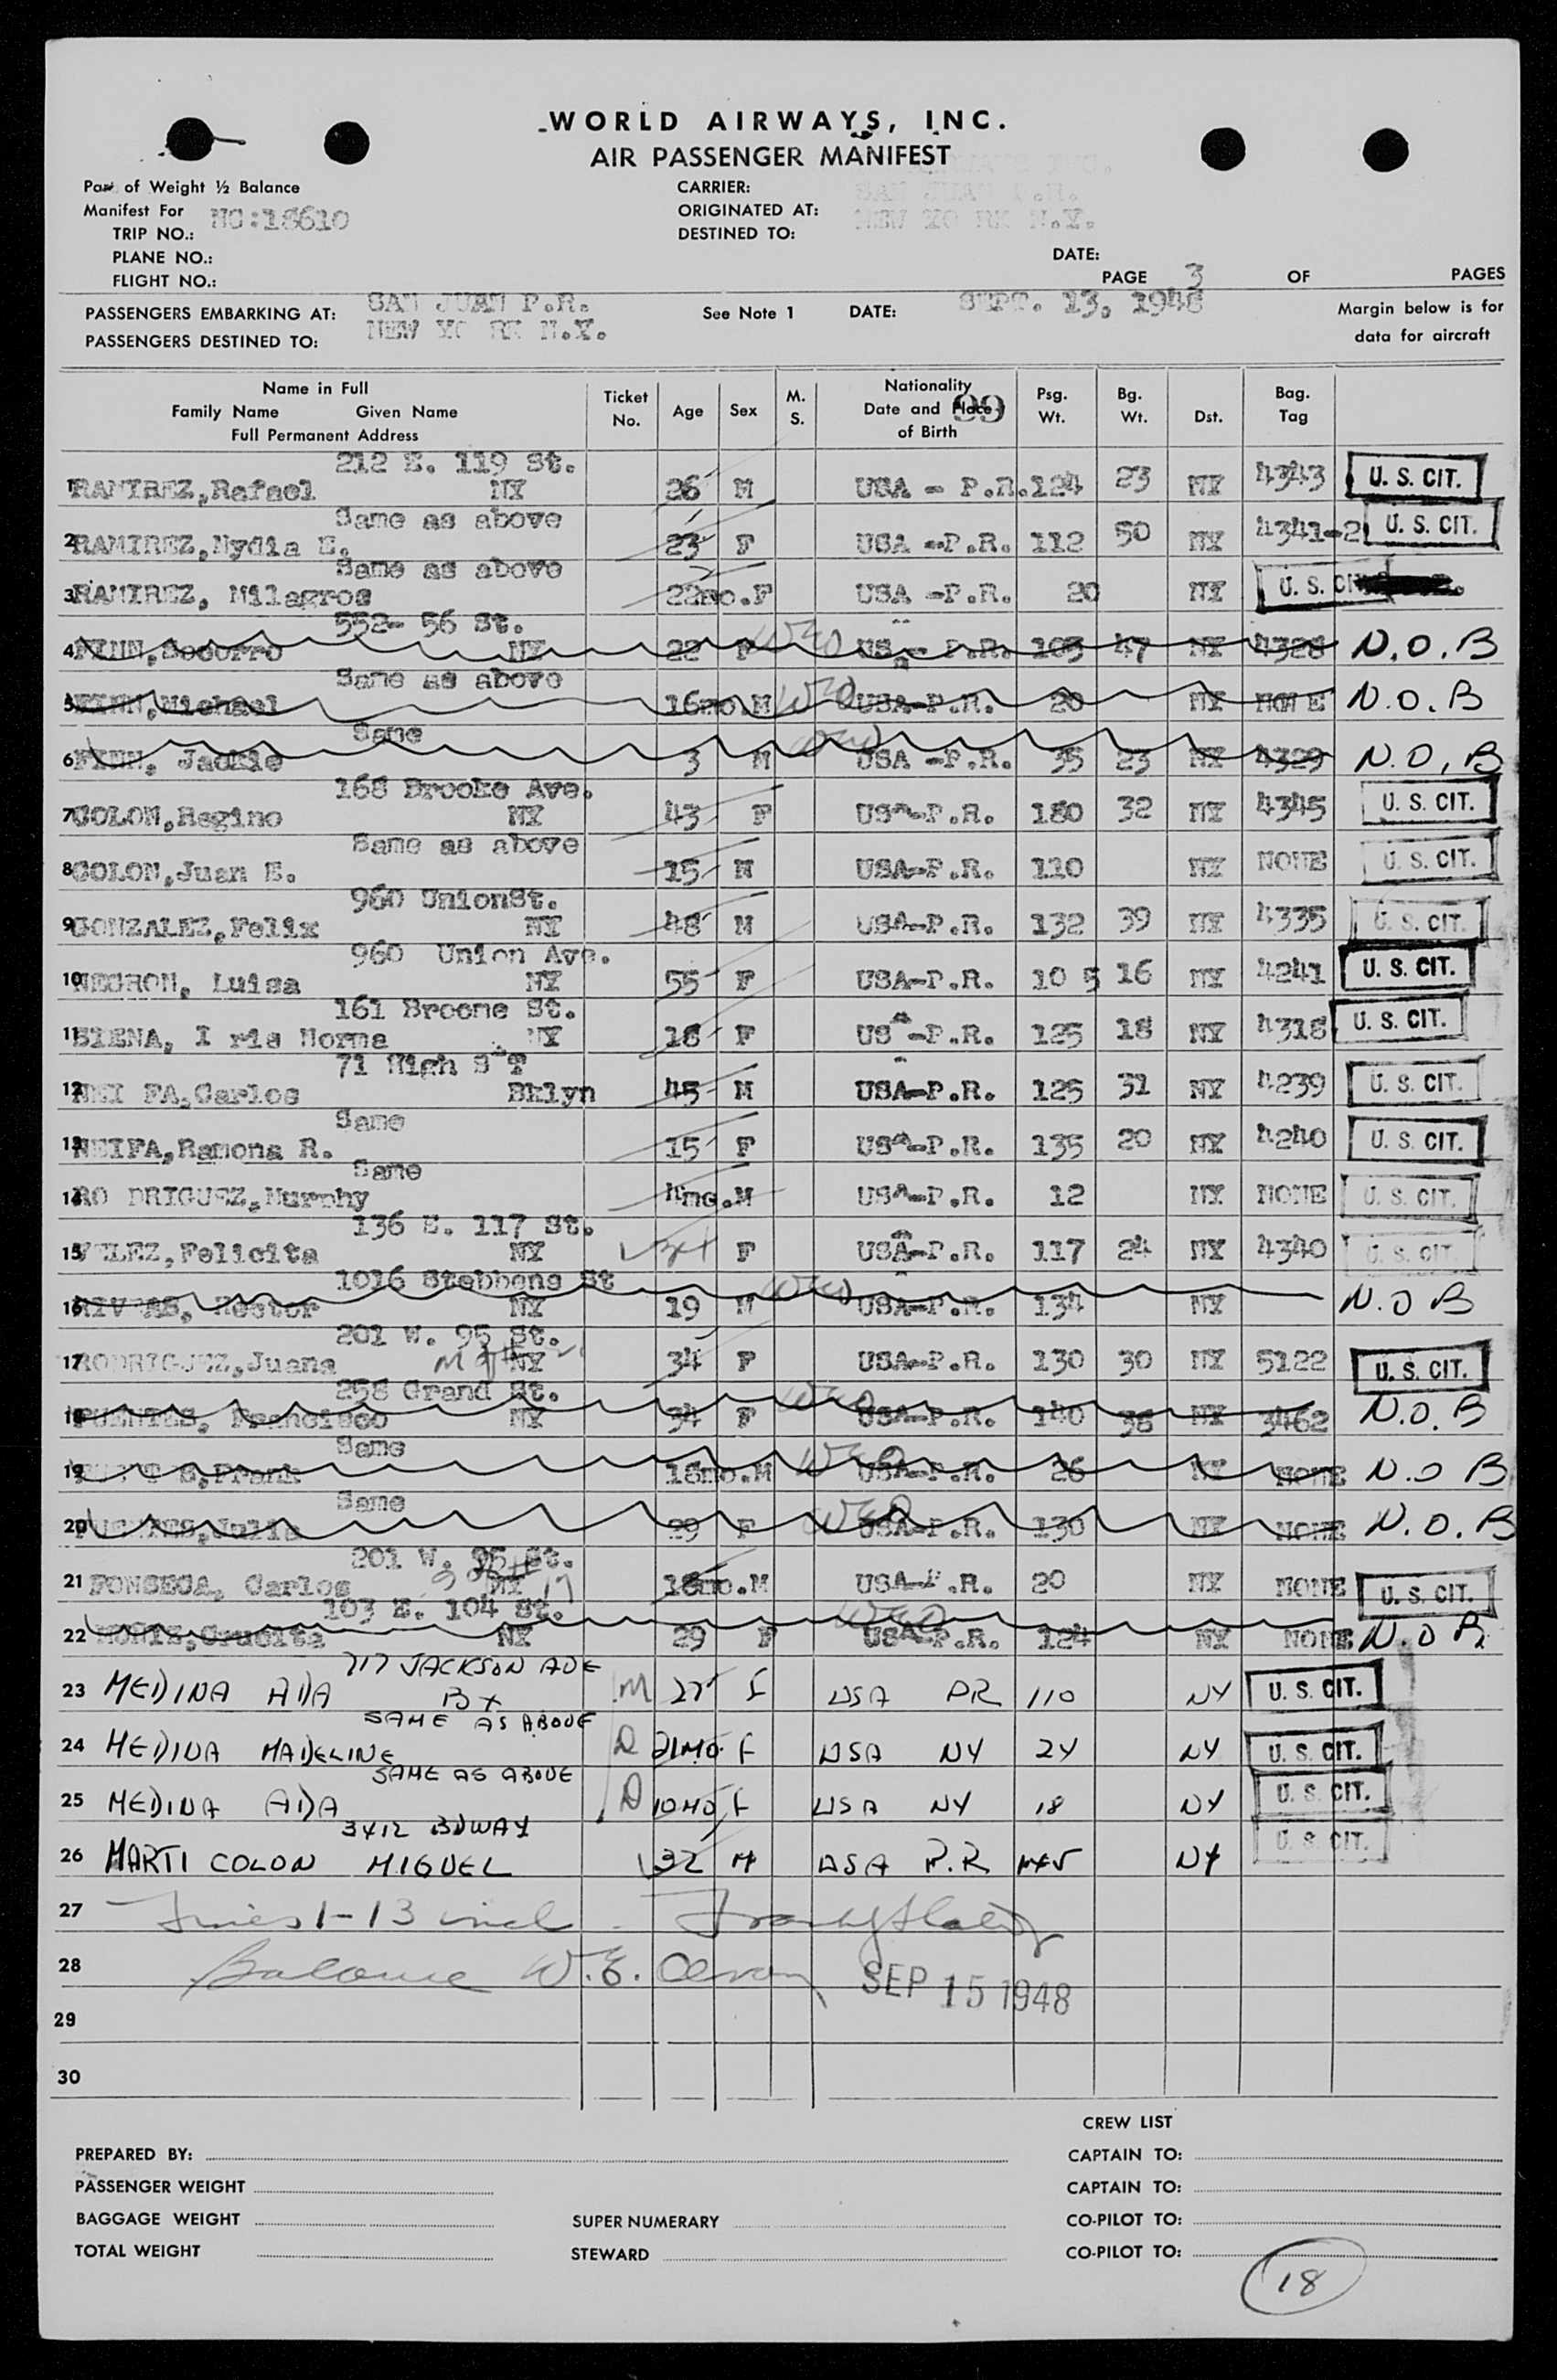 WORLD AIRWAYS, INC.
AIR PASSENGER MANIFEST
Part of Weight ½ Balance
Manifest For NC:18610
TRIP NO.:
PLANE NO.:
FLIGHT NO.:
CARRIER:
ORIGINATED AT: SAN JUAN P.R.
DESTINED TO: NEW YO RK N.Y.
DATE:
PAGE 3 OF PAGES
PASSENGERS EMBARKING AT: SAN JUAN P.R.
PASSENGERS DESTINED TO: NEW YO RK N.Y.
See Note 1 DATE: SEPT. 13, 1948
Margin below is for
data for aircraft
Name in Full
Family Name Given Name
Full Permanent Address
Ticket No. Age Sex M. S. Nationality Date and Place of Birth 99 Psg. Wt. Bg. Wt. Dst. Bag. Tag
212 E. 119 St.
1 RAMIREZ,Rafael NY 26 M USA - P.R. 124 23 NY 4343 U. S. CIT.
Same as above
2 RAMIREZ,Nydia E. 23 F USA -P.R. 112 50 NY 4341-2 U. S. CIT.
Same as above
3 RAMIREZ, Milagros 22mo. F USA -P.R. 20 NY U. S. CIT.
552- 56 St.
4 FINN,Socorro NY 22 F USA- P.R. 105 47 NY 4328 N.O.B
Same as above
5 FINN,Michael 16mo.M USA-P.R. 20 NY NONE N.O.B
Same
6 FINN, Jackie 3 M USA -P.R. 35 23 NY 4329 N.O.B
168 Brooke Ave.
7 COLON,Regino NY 43 F USA-P.R. 180 32 NY 4345 U. S. CIT.
Same as above
8 COLON,Juan E. 15 M USA-P.R. 110 NY NONE U. S. CIT.
960 UnionSt.
9 GONZALEZ,Felix NY 48 M USA-P.R. 132 39 NY 4335 U. S. CIT.
960 Union Ave.
10 NEGRON, Luisa NY 55 F USA-P.R. 10 5 16 NY 4241 U. S. CIT.
161 Broome St.
11 SIENA, I ris Norma NY 18 F USA-P.R. 125 18 NY 4318 U. S. CIT.
71 High S T
12 NEI FA,Carlos Bklyn 45 M USA-P.R. 125 31 NY 4239 U. S. CIT.
Same
13 NEIFA,Ramona R. 15 F USA-P.R. 135 20 NY 4240 U. S. CIT.
Same
14 RO DRIGUEZ,Murphy 4mo.M USA-P.R. 12 NY NONE U. S. CIT.
136 E. 117 St.
15 VELEZ,Felicita NY F USA-P.R. 117 24 NY 4340 U. S. CIT.
1016 Stebbens St
16 RIVERAS, Hector NY 19 M USA-P.R. 134 NY N.O B
201 W. 95 St.
17 RODRIGUEZ,Juana NY 34 F USA-P.R. 130 30 NY 5122 U. S. CIT.
258 Grand St.
18 FUENTES, Francisco NY 34 F USA-P.R. 140 36 NY 3462 N.O.B
Same
19 Frank 18mo.M USA-P.R. 26 NY NONE N.O B
Same
20 FUENTES,Julia 29 F USA-P.R. 130 NY NONE N.O.B
201 W. 95 St.
21 FONSECA, Carlos NY 18mo.M USA-P.R. 20 NY NONE U. S. CIT.
103 E. 104 St.
22 Crucita NY 29 F USA-P.R. 124 NY NONE N.O B.
717 JACKSON AVE
23 MEDINA ADA BX M 27 F USA PR 110 NY U. S. CIT.
SAME AS ABOVE
24 MEDINA MADELINE D 21MO F USA NY 24 NY U. S. CIT.
SAME AS ABOVE
25 MEDINA ADA D 10MO F USA NY 18 NY U. S. CIT.
3412 BDWAY
26 MARTI COLON MIGUEL 32 M USA P.R 145 NY U. S. CIT.
27 Lines 1-13 incl.
28 Balance W.E. SEP 15 1948
29
30
CREW LIST
PREPARED BY: CAPTAIN TO:
PASSENGER WEIGHT CAPTAIN TO:
BAGGAGE WEIGHT SUPER NUMERARY CO-PILOT TO:
TOTAL WEIGHT STEWARD CO-PILOT TO:
18